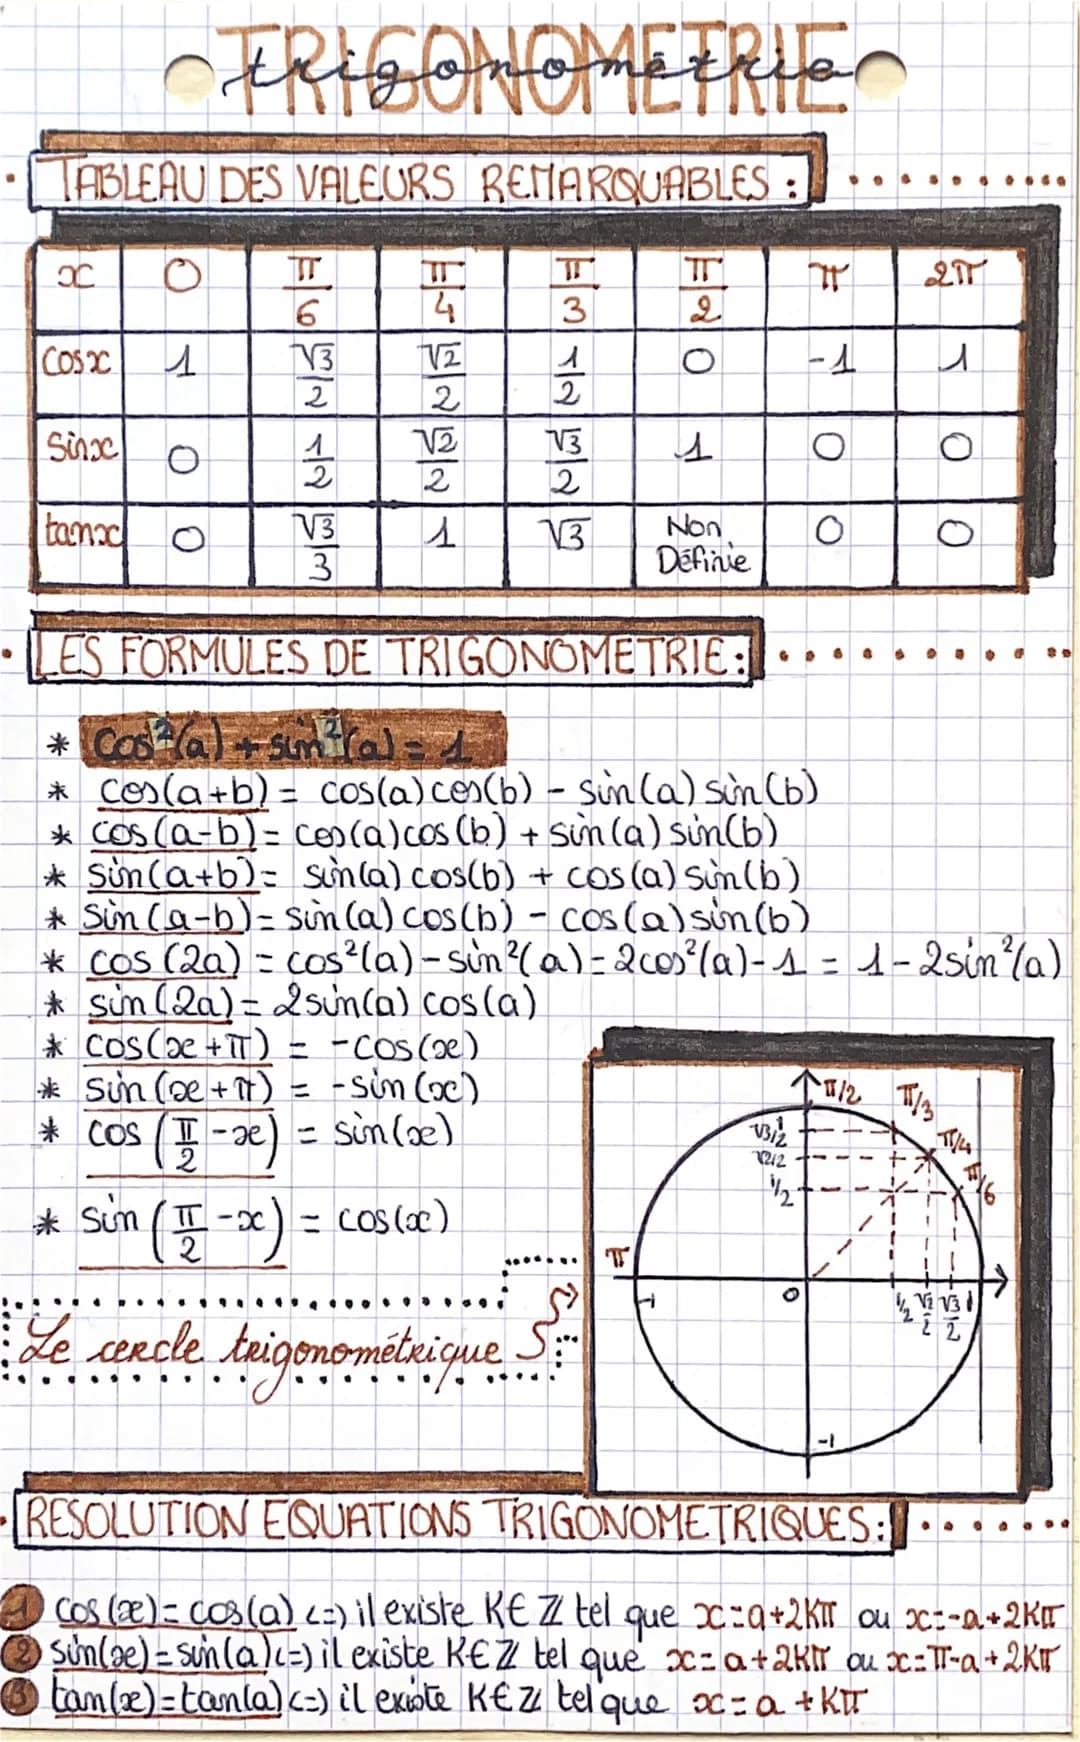 TRIGONOMETRIE
trigonométrie
TABLEAU DES VALEURS REMARQUABLES :
x 0 π/6 π/4 π/3 π/2 π 2π
cosx 1 √3/2 √2/2 1/2 0 -1 1
sinx 0 1/2 √2/2 √3/2 1 0 0
tanx 0 √3/3 1 √3 Non Définie 0 0
LES FORMULES DE TRIGONOMETRIE :
* cos²(a) + sin²(a) = 1
* cos(a+b) = cos(a)cos(b) - sin(a)sin(b)
* cos(a-b) = cos(a)cos(b) + sin(a)sin(b)
* sin(a+b) = sin(a)cos(b) + cos(a)sin(b)
* sin(a-b) = sin(a)cos(b) - cos(a)sin(b)
* cos(2a) = cos²(a) - sin²(a) = 2cos²(a) - 1 = 1 - 2sin²(a)
* sin(2a) = 2sin(a)cos(a)
* cos(x+π) = -cos(x)
* sin(x+π) = -sin(x)
* cos(π/2 - x) = sin(x)
* sin(π/2 - x) = cos(x)
Le cercle trigonométrique
π/2 π/3
1
√3/2 π/4
√2/2 π/6
1/2
π
-1 0 1/2 √2/2 √3/2 1
-1
RESOLUTION EQUATIONS TRIGONOMETRIQUES :
1 cos(x) = cos(a) <=> il existe K∈ℤ tel que x=a+2Kπ ou x=-a+2Kπ
2 sin(x) = sin(a) <=> il existe K∈ℤ tel que x=a+2Kπ ou x=π-a+2Kπ
3 tan(x) = tan(a) <=> il existe K∈ℤ tel que x=a+Kπ